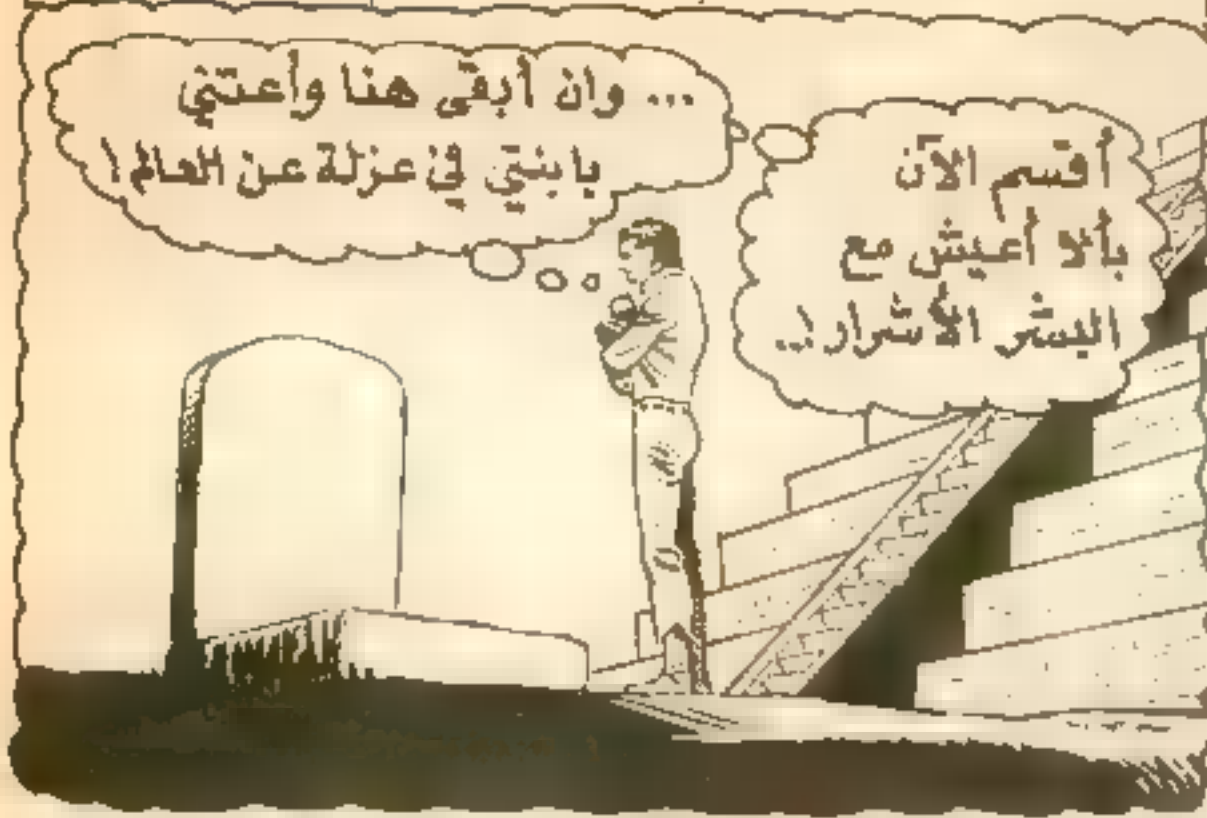 أقسم الآن
بألا أعيش مع
البشر الأشرار!..
... وان أبقى هنا وأعتني
بابنتي في عزلة عن العالم!